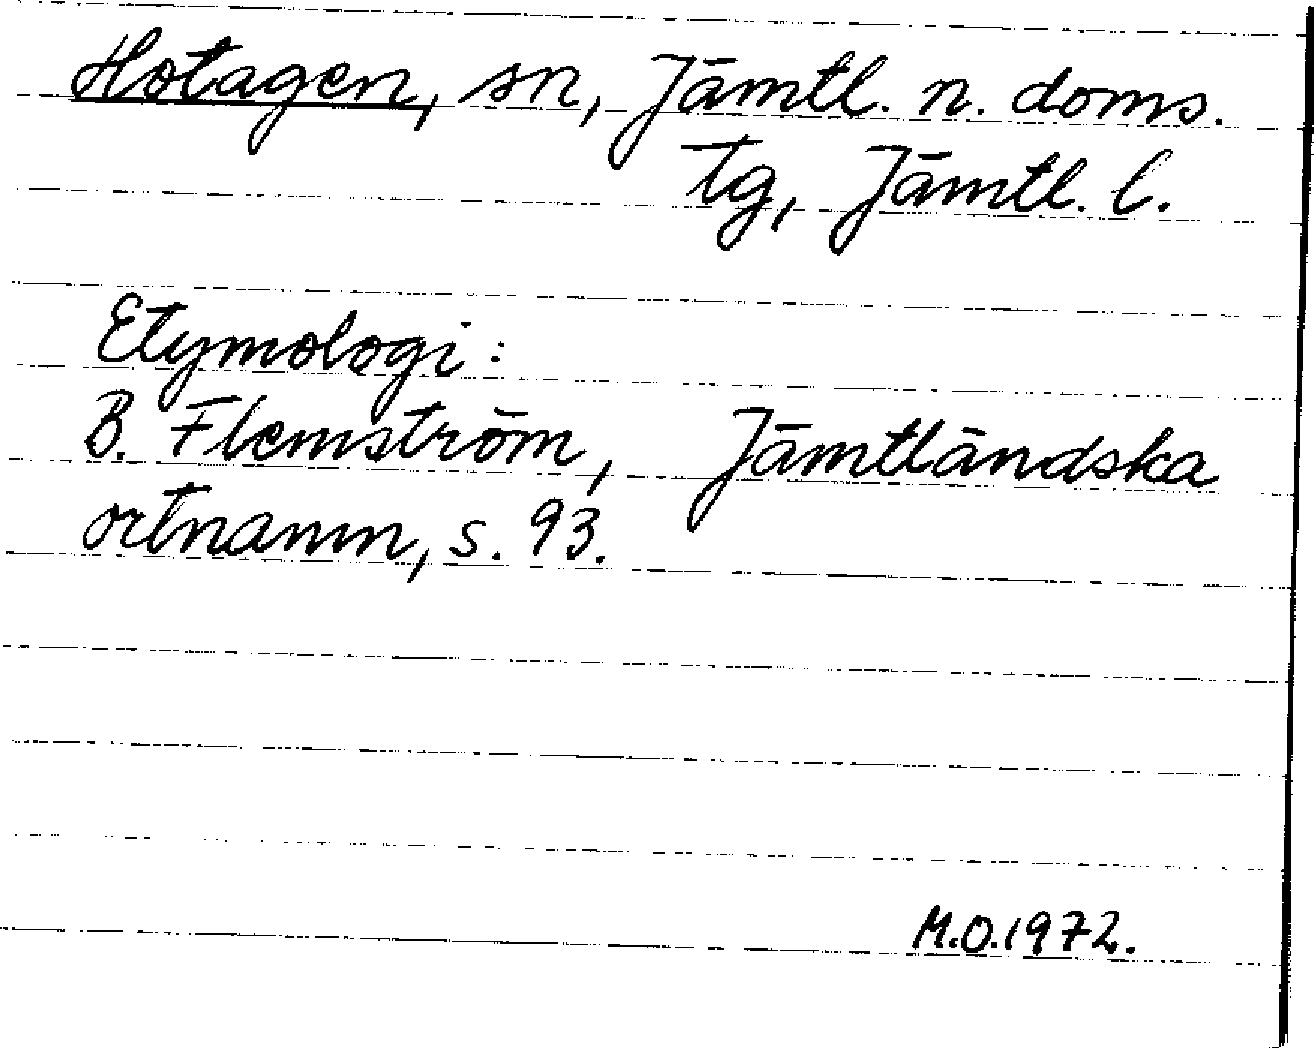 Hotagen, sn, Jämtl. n. doms.
tg, Jämtl. l.
Etymologi:
B. Flemström, Jämtländska
ortnamn, s. 93.
M.O.1972.